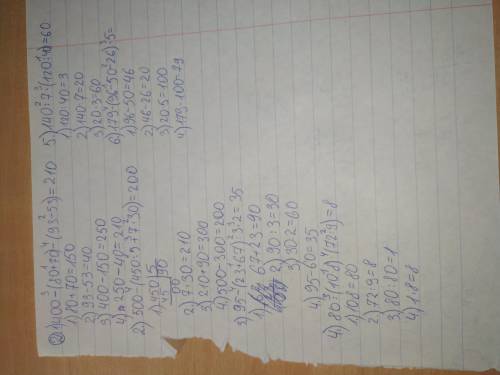 ② 1) 400-(80+70)-(93-53)=210
1) 80+70=150
2) 93-53=40
3) 400-150=250
4) 250-40=210
2) 500-(450:5+7·30)=200
1) 450 5
45 90
00
2) 7·30=210
3) 210+90=300
4) 500-300=200
3) 95-(23+67):3·2=35
1) 67+23=90
2) 90:3=30
3) 30·2=60
4) 95-60=35
4) 80:(10·8)·(72:9)=8
1) 10·8=80
2) 72:9=8
3) 80:80=1
4) 1·8=8
5) 140:7·(120:40)=60
1) 120:40=3
2) 140:7=20
3) 20·3=60
6) 179-(96-50-26)·5=
1) 96-50=46
2) 46-26=20
3) 20·5=100
4) 179-100=79